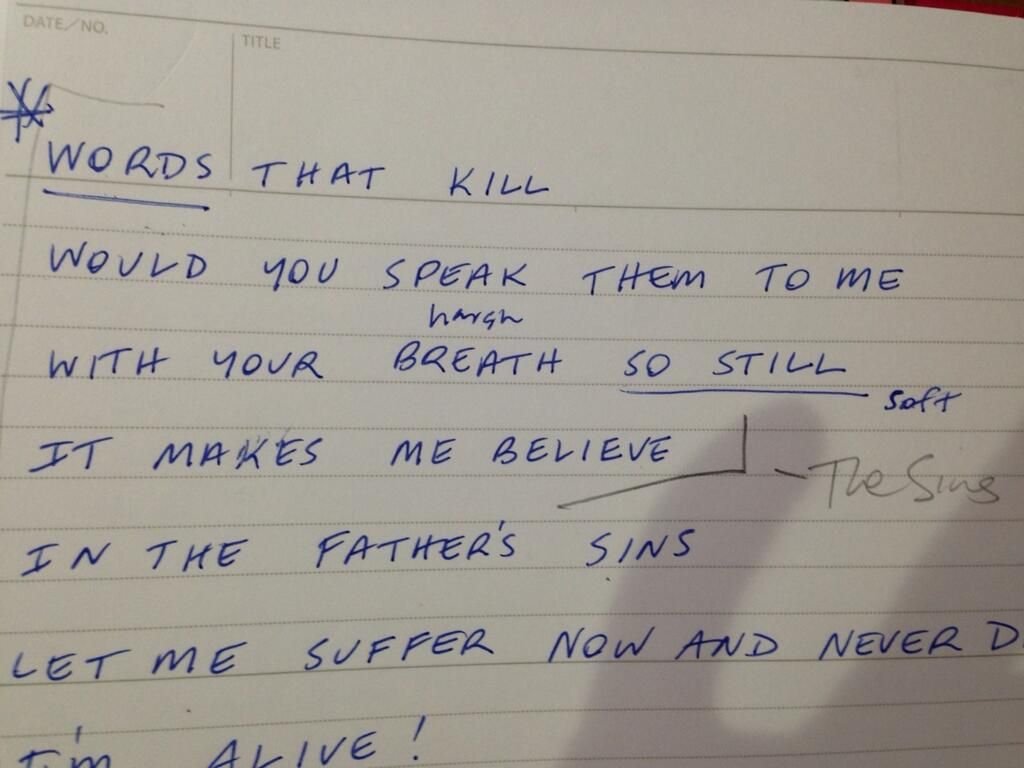 DATE/NO.
TITLE
WORDS THAT KILL
WOULD YOU SPEAK THEM TO ME
harsh
WITH YOUR BREATH SO STILL
soft
IT MAKES ME BELIEVE
The Sins
IN THE FATHER'S SINS
LET ME SUFFER NOW AND NEVER D
I'm ALIVE!